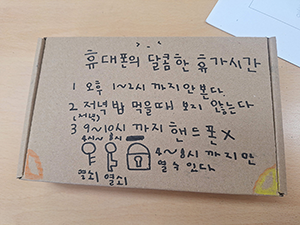 휴대폰의 달콤한 휴가시간
1 오후 1~2시 까지 안본다.
2 저녁밥 먹을때 보지 않는다
(저녁)
3 9~10시 까지 핸드폰 X
4시~8시
4~8시 까지만
열 수 있다
열쇠 열쇠